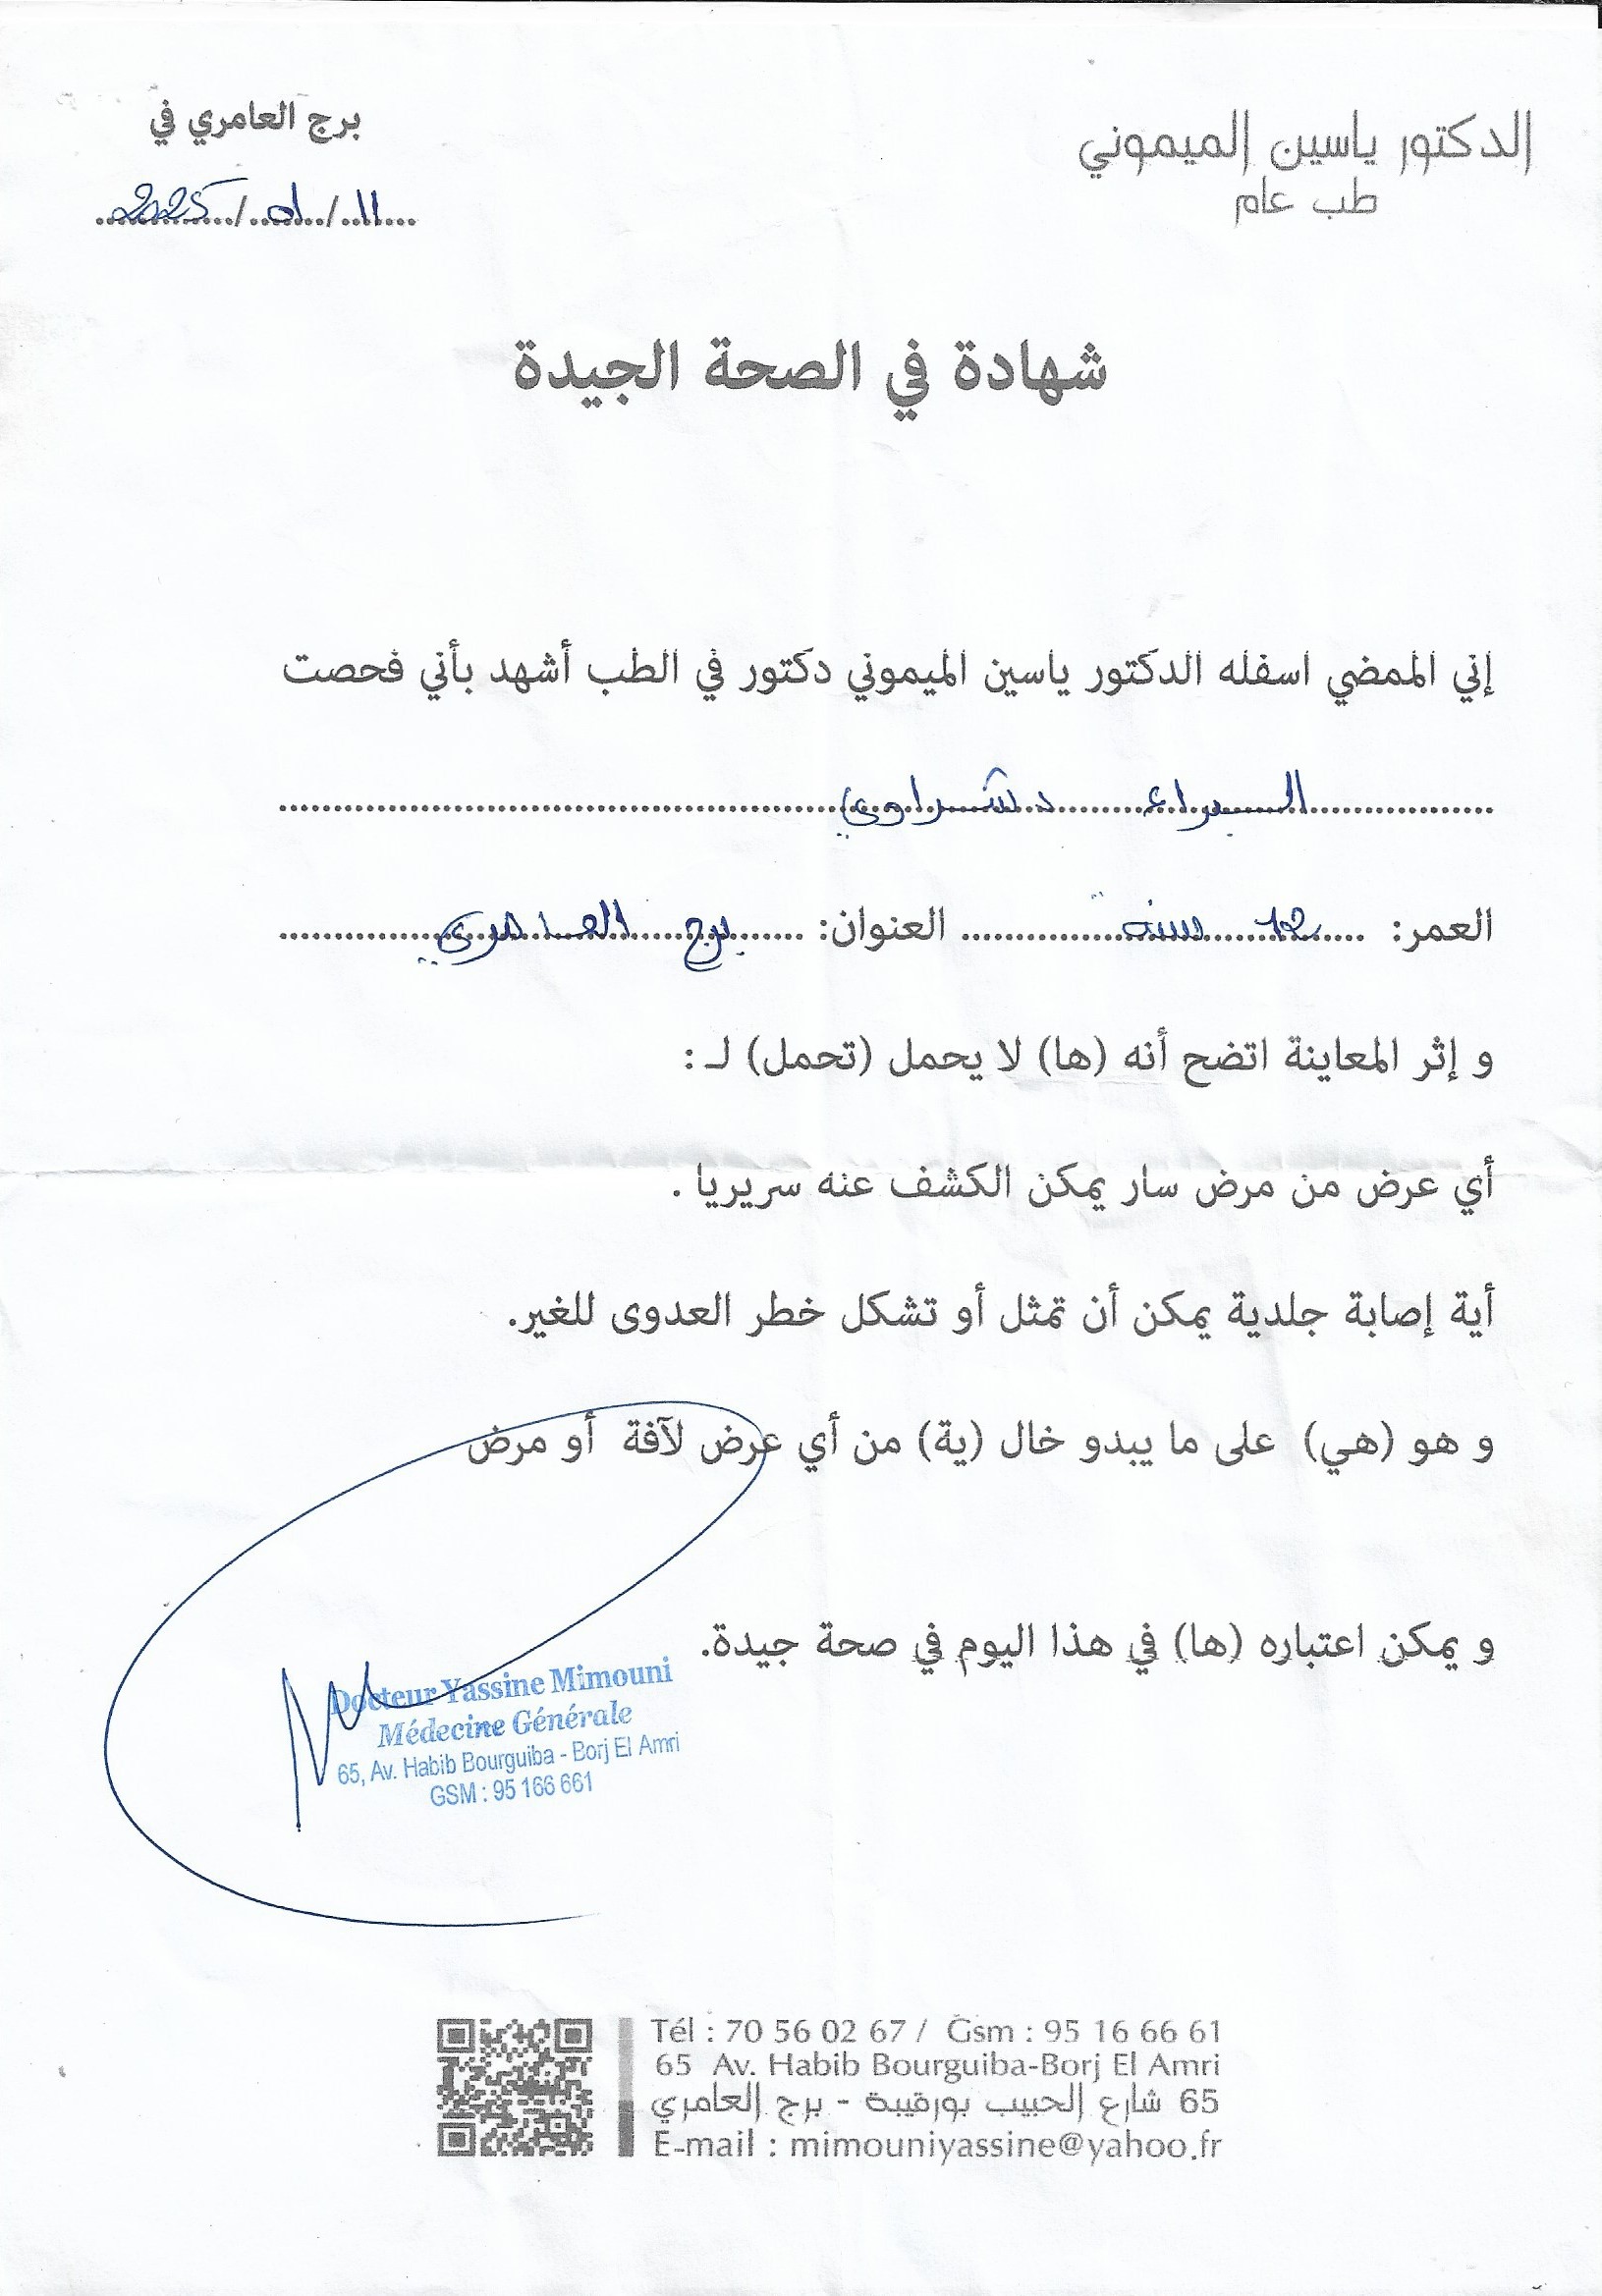 الدكتور ياسين الميموني
طب عام
برج العامري في
11/01/2025
شهادة في الصحة الجيدة
إني الممضي اسفله الدكتور ياسين الميموني دكتور في الطب أشهد بأني فحصت
البراء دشراوي
العمر: 12 سنة العنوان: برج العامري
و إثر المعاينة اتضح أنه (ها) لا يحمل (تحمل) لـ :
أي عرض من مرض سار يمكن الكشف عنه سريريا .
أية إصابة جلدية يمكن أن تمثل أو تشكل خطر العدوى للغير.
و هو (هي) على ما يبدو خال (ية) من أي عرض لآفة أو مرض
و يمكن اعتباره (ها) في هذا اليوم في صحة جيدة.
Docteur Yassine Mimouni
Médecine Générale
65, Av. Habib Bourguiba - Borj El Amri
GSM : 95 166 661
Tél : 70 56 02 67 / Gsm : 95 16 66 61
65 Av. Habib Bourguiba-Borj El Amri
65 شارع الحبيب بورقيبة - برج العامري
E-mail : mimouniyassine@yahoo.fr